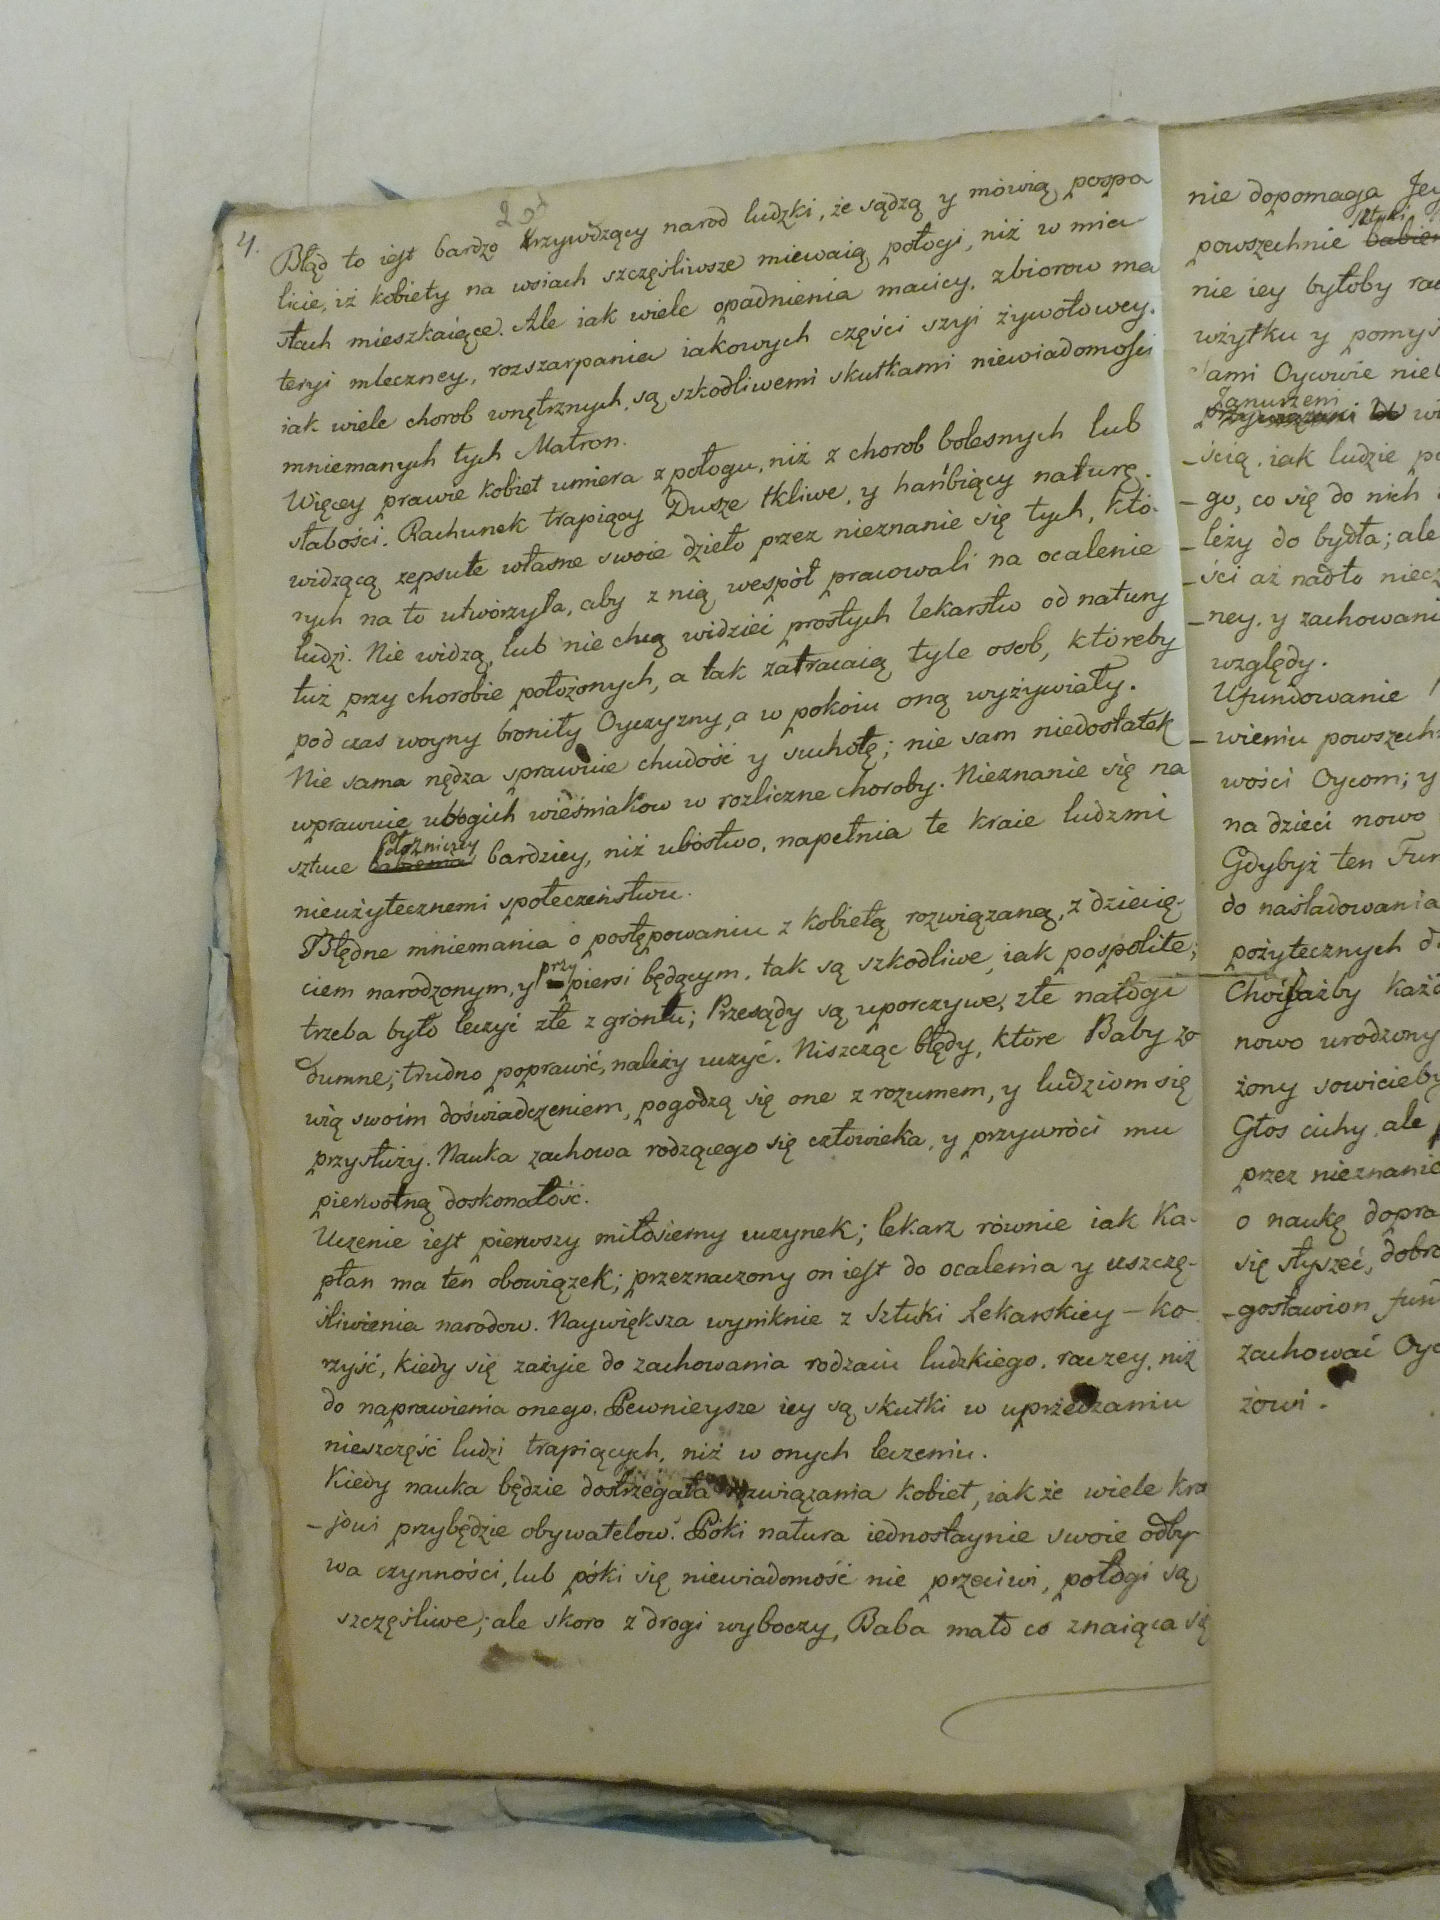 4.
Błąd to iest bardzo krzywdzący narod ludzki, że sądzą y mówią pospo
licie, iż kobiety na wsiach szczęśliwsze miewaią połogi, niż w mia
stach mieszkaiące. Ale iak wiele opadnienia macicy, zbiorow ma
teryi mleczney, rozszarpania iakowych części szyi żywotowey,
iak wiele chorob wnętrznych, są szkodliwemi skutkami niewiadomości
mniemanych tych Matron.
Więcey prawie kobiet umiera z połogu, niż z chorob bolesnych lub
słabości. Rachunek trapiący Dusze tkliwe, y hańbiący naturę.
widzącą zepsute własne swoie dzieło przez nieznanie się tych, któ-
rych na to utworzyła, aby z nią wespół pracowali na ocalenie
ludzi. Nie widzą, lub nie chcą widzieć prostych lekarstw od natury
tuż przy chorobie położonych, a tak zatracaią tyle osob, któreby
pod czas woyny broniły Oyczyzny, a w pokoiu oną wyżywiały.
Nie sama nędza sprawuie chudość y suchotę; nie sam niedostatek
wprawuie ubogich wieśniakow w rozliczne choroby. Nieznanie się na
sztuce Położniczey bardziey, niż ubóstwo, napełnia te kraie ludzmi
nieużytecznemi społeczeństwu.
Błędne mniemania o postępowaniu z kobietą rozwiązaną, z dziecię-
ciem narodzonym, y przy piersi będącym, tak są szkodliwe, iak pospolite;
trzeba było leczyć złe z grontu; Przesądy są uporczywe, złe nałogi
dumne; trudno poprawić, należy uczyć. Niszcząc błędy, które Baby zo
wią swoim doświadczeniem, pogodzą się one z rozumem, y ludziom się
przysłuży. Nauka zachowa rodzącego się człowieka, y przywróci mu
pierwotną doskonałość.
Uczenie iest pierwszy miłosierny uczynek; lekarz równie iak Ka-
płan ma ten obowiązek; przeznaczony on iest do ocalenia y uszczę-
śliwienia narodow. Naywiększa wyniknie z Sztuki Lekarskiey – ko
rzyść, kiedy się zażyie do zachowania rodzaiu ludzkiego, raczey, niż
do naprawienia onego. Pewnieysze iey są skutki w uprzedzaniu
nieszczęść ludzi trapiących, niż w onych leczeniu.
Kiedy nauka będzie dostrzegała rozwiązania kobiet, iak że wiele kra
-jowi przybędzie obywatelow. Póki natura iednostaynie swoie odby
wa czynności, lub póki się niewiadomość nie przeciwi, połogi są
szczęśliwe; ale skoro z drogi wyboczy, Baba mało co znaiąca się
nie dopomaga Jey
powszechnie Sztuki
nie iey byłoby
wżytku y
ami Oycowie
-ścią, iak ludzie
-go, co się do nich
-leży do bydła; ale
-ści aż nadto
-ney, y
względy.
Ufundowanie
-wieniu
wości Oycom; y
na dzieci nowo
Gdybyż ten
do naśladowania
pożytecznych
nowo
żony
Głos cichy, ale
przez
o naukę
się słyszeć,
-gosławion
zachować
żowi.